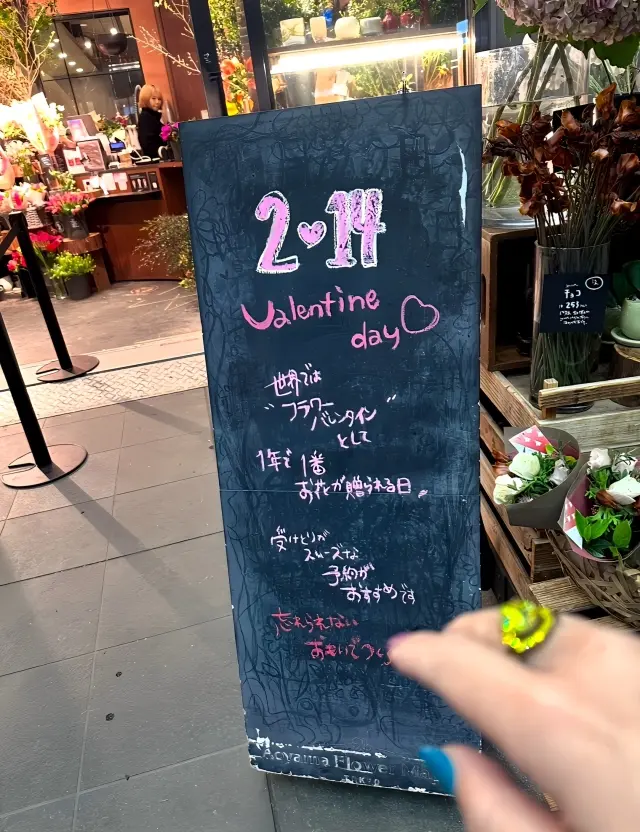 2♡14
Valentine
day♡
世界では
"フラワー
バレンタイン"
として
1年で1番
お花が贈られる日。
受けとりが
スムーズな
予約が
おすすめです
忘れられない
おもいでづく
Aoyama Flower Ma
チョコ